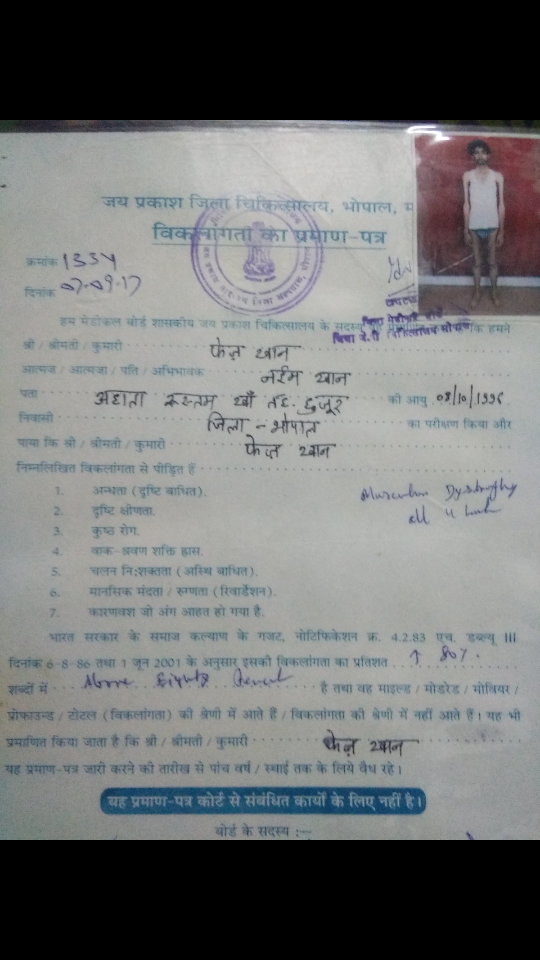 जय प्रकाश जिला चिकित्सालय, भोपाल, म
विकलांगता का प्रमाण-पत्र
क्रमांक 1334
दिनांक 07-09-17
हम मेडीकल बोर्ड शासकीय जय प्रकाश चिकित्सालय के सदस्य कि हमने
श्री / श्रीमती / कुमारी फेज खान
आत्मज / आत्मजा / पति / अभिभावक नईम खान
पता अहाता रुस्तम खाँ तह. हुजूर की आयु 08/10/1996
निवासी जिला - भोपाल का परीक्षण किया और
पाया कि श्री / श्रीमती / कुमारी फेज खान
निम्नलिखित विकलांगता से पीड़ित हैं
1. अन्धता (दृष्टि बाधित).
2. दृष्टि क्षीणता.
3. कुष्ठ रोग.
4. वाक-श्रवण शक्ति ह्रास.
5. चलन निःशक्तता (अस्थि बाधित).
6. मानसिक मंदता / रुग्णता (रिटार्डेशन).
7. कारणवश जो अंग आहत हो गया है.
Muscular Dystrophy
all 4 limb
भारत सरकार के समाज कल्याण के गजट, नोटिफिकेशन क्र. 4.2.83 एच. डब्ल्यू III
दिनांक 6-8-86 तथा 1 जून 2001 के अनुसार इसकी विकलांगता का प्रतिशत ↑ 80%.
शब्दों में Above Eighty Percent है तथा वह माइल्ड / मोडरेड / मोवियर /
प्रोफाउन्ड / टोटल (विकलांगता) की श्रेणी में आते हैं / विकलांगता की श्रेणी में नहीं आते हैं। यह भी
प्रमाणित किया जाता है कि श्री / श्रीमती / कुमारी फेज खान
यह प्रमाण-पत्र जारी करने की तारीख से पांच वर्ष / स्थाई तक के लिये वैध रहे।
यह प्रमाण-पत्र कोर्ट से संबंधित कार्यों के लिए नहीं है।
बोर्ड के सदस्य :—